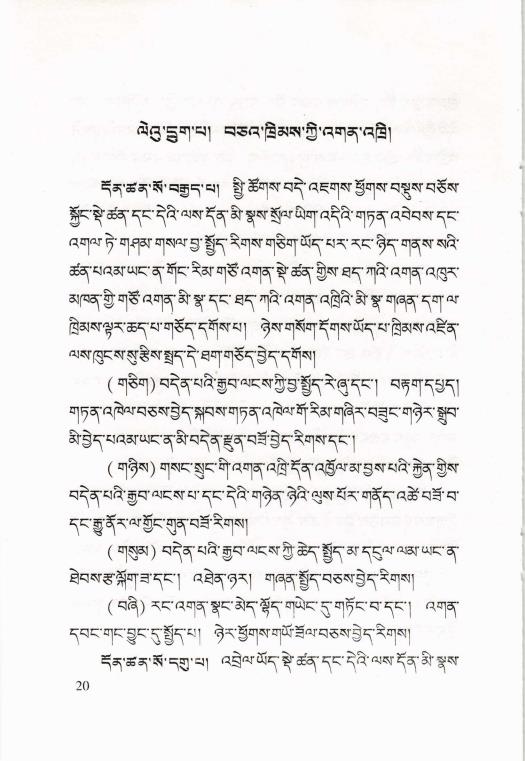 ལེའུ་དྲུག་པ། བཅའ་ཁྲིམས་ཀྱི་འགན་འཁྲི།
དོན་ཚན་སོ་བརྒྱད་པ། སྤྱི་ཚོགས་བདེ་འཇགས་ཕྱོགས་བསྡུས་བཅོས་
སྐྱོང་སྡེ་ཚན་དང་དེའི་ལས་དོན་མི་སྣས་སྲོལ་ཡིག་འདིའི་གཏན་འབེབས་དང་
འགལ་ཏེ་གཤམ་གསལ་བྱ་སྤྱོད་རིགས་གཅིག་ཡོད་པར་རང་ཉིད་གནས་སའི་
ཚན་པའམ་ཡང་ན་གོང་རིམ་གཙོ་འགན་སྡེ་ཚན་གྱིས་ཐད་ཀའི་འགན་འཁུར་
མཁན་གྱི་གཙོ་འགན་མི་སྣ་དང་ཐད་ཀའི་འགན་འཁྲིའི་མི་སྣ་གཞན་དག་ལ་
ཁྲིམས་ལྟར་ཆད་པ་གཅོད་དགོས་པ། ཉེས་གསོག་དོགས་ཡོད་པ་ཁྲིམས་འཛིན་
ལས་ཁུངས་སུ་རྩིས་སྤྲད་དེ་ཐག་གཅོད་བྱེད་དགོས།
（གཅིག）བདེན་པའི་རྒྱབ་ལངས་ཀྱི་བྱ་སྤྱོད་རེ་ཞུ་དང་། བརྟག་དཔྱད།
གཏན་འཁེལ་བཅས་བྱེད་སྐབས་གཏན་འཁེལ་གོ་རིམ་གཞིར་བཟུང་གཉེར་སྒྲུབ་
མི་བྱེད་པའམ་ཡང་ན་མི་བདེན་རྫུན་བཟོ་བྱེད་རིགས་དང་།
（གཉིས）གསང་སྲུང་གི་འགན་འཁྲི་དོན་འཁྱོལ་མ་བྱས་པའི་རྐྱེན་གྱིས་
བདེན་པའི་རྒྱབ་ལངས་པ་དང་དེའི་གཉེན་ཉེའི་ལུས་པོར་གནོད་འཚེ་བཟོ་བ་
དང་རྒྱུ་ནོར་ལ་གྱོང་གུན་བཟོ་རིགས།
（གསུམ）བདེན་པའི་རྒྱབ་ལངས་ཀྱི་ཆེད་སྤྱོད་མ་དངུལ་ལམ་ཡང་ན་
ཐེབས་རྩ་ལྐོག་ཟ་དང་། འཐེན་ཉར། གཞན་སྤྱོད་བཅས་བྱེད་རིགས།
（བཞི）རང་འགན་སྣང་མེད་ལྷོད་གཡེང་དུ་གཏོང་བ་དང་། འགན་
དབང་གང་བྱུང་དུ་སྤྱོད་པ། ཉེར་ཕྱོགས་གཡོ་ཟོལ་བཅས་བྱེད་རིགས།
དོན་ཚན་སོ་དགུ་པ། འབྲེལ་ཡོད་སྡེ་ཚན་དང་དེའི་ལས་དོན་མི་སྣས་
20